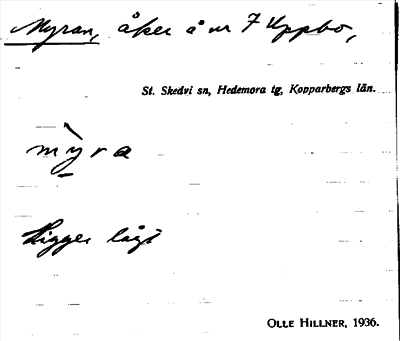 Myran, åker å nr 7 Uppbo,
St. Skedvi sn, Hedemora tg, Kopparbergs län.
mỳ̠ra
Ligger lågt
OLLE HILLNER, 1936.